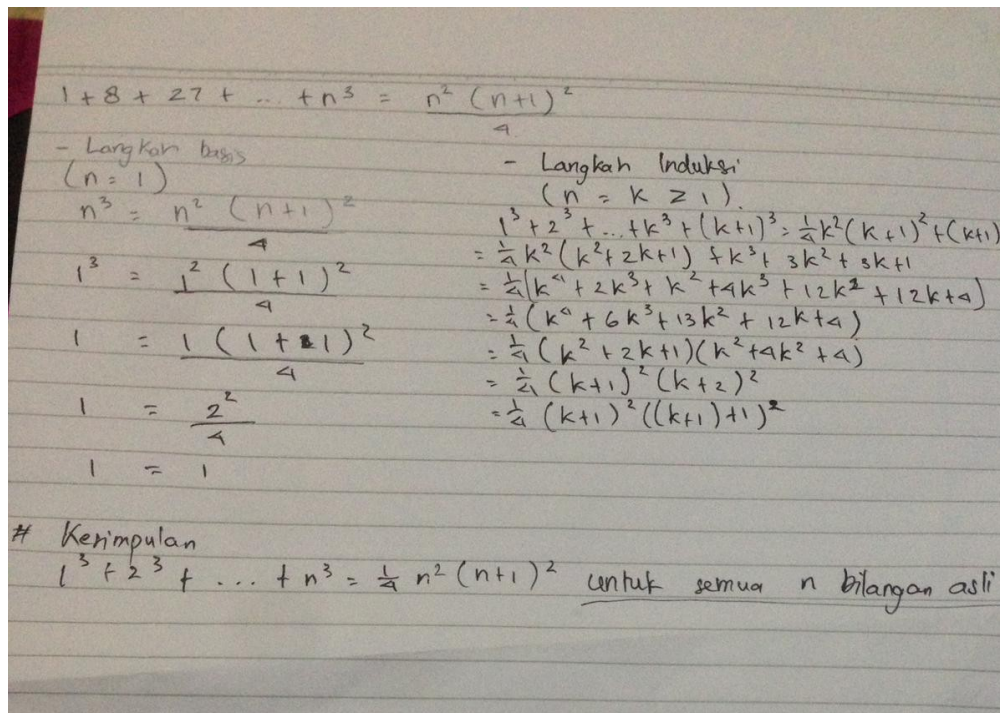 1 + 8 + 27 + ... + n³ = n² (n+1)² / 4
- Langkah basis
(n = 1)
n³ = n² (n+1)² / 4
1³ = 1² (1+1)² / 4
1 = 1 (1+1)² / 4
1 = 2² / 4
1 = 1
- Langkah Induksi
(n = k ≥ 1).
1³ + 2³ + ... + k³ + (k+1)³ = 1/4 k² (k+1)² + (k+1)
= 1/4 k² (k² + 2k+1) + k³ + 3k² + 3k+1
= 1/4 (k⁴ + 2k³ + k² + 4k³ + 12k² + 12k+4)
= 1/4 (k⁴ + 6k³ + 13k² + 12k+4)
= 1/4 (k² + 2k+1)(k² + 4k² + 4)
= 1/4 (k+1)² (k+2)²
= 1/4 (k+1)² ((k+1)+1)²
# Kesimpulan
1³ + 2³ + ... + n³ = 1/4 n² (n+1)² untuk semua n bilangan asli